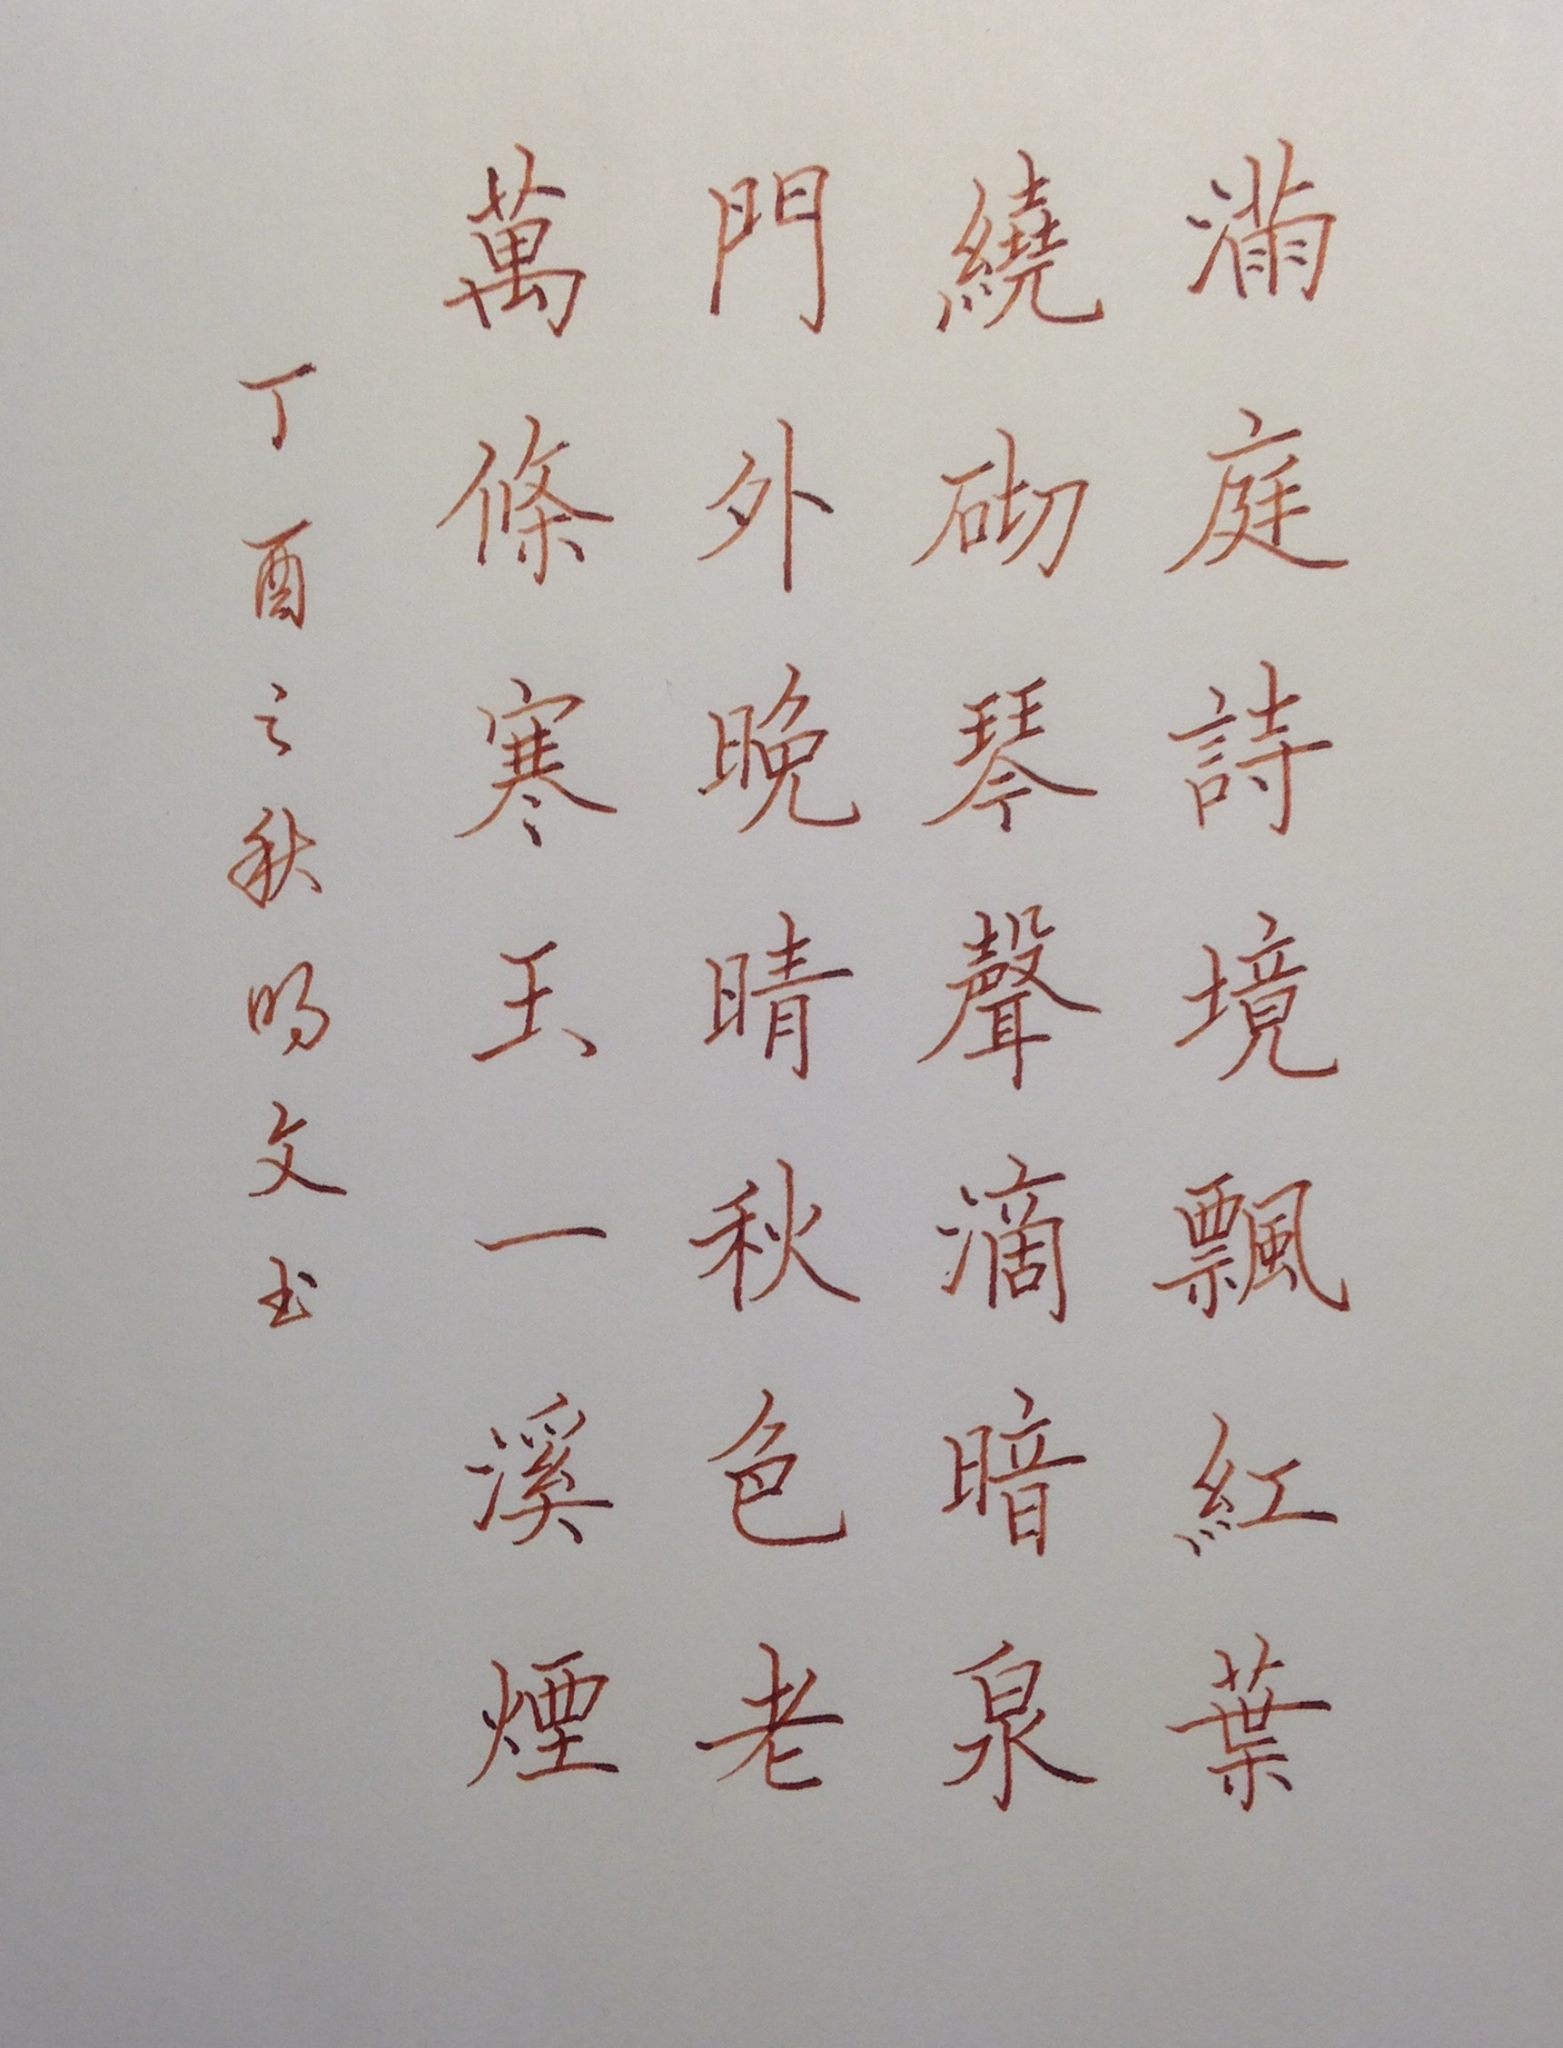 滿庭詩境飄紅葉
繞砌琴聲滴暗泉
門外晚晴秋色老
萬條寒玉一溪煙
丁酉之秋明文书